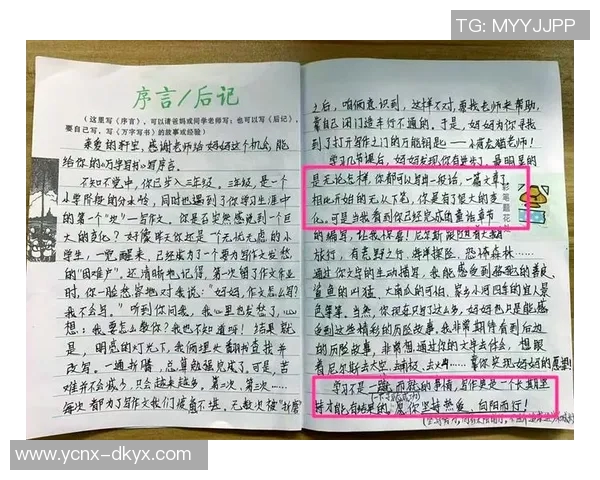 TG: MYYJJPP
序言/后记
(这里写《序言》,可以请爸妈或同学老师写;也可以写《后记》,
要自己写,写《万字写书》的故事或经验)
亲爱的轩宝,感谢老师给妈妈这个机会,能
给你的《万字写书》写序言。
不知不觉中,你已步入三年级。三年级,是一个
小学阶段的分水岭,同时也遇到了你学习生涯中
的第一个"次"—写作文。你是否突然感觉到一个巨
大的变化?好像昨天你还是一个无忧无虑的小
学生,一觉醒来,已经成为了一个要为写作文发愁
的"困难户"。还清晰地记得,第一次留了作文作业
时,你一脸愁容地对我说:"妈妈,作文怎么写?
我不会写。"听到你问我,我心里也发愁了,
想,我要怎么教你?我也不知道呀!结果就
是,明亮的灯光下,我俩埋头翻书查找并
改写。一通折腾,总算勉强完成了,可是,苦
难并不会减少,只会越来越多,第二次、第三次……
每次都为了写作文我们疲惫不堪。无数次被"折磨
之后,咱俩意识到,这样不对,要找老师来帮助,
靠自己闭门造车行不通的。于是,妈妈为你寻找
到了打开写作之门的万能钥匙——小荷老猫老师!
学习几节课后,妈妈发现你有进步了,最明显的
是无论怎样,你都可以写出一段话,一篇文章了,
相比开始的无从下笔,你是有了很大的变
化。可是当我看到你已经完成的童话章节
的编写,让我惊喜!尼尔斯
旅行,有荒野之行、海洋探险、恐怖森林……
通过你文字的生动描写,我能感受到
鲨鱼的凶猛、大南瓜的可怕、家乡小河四季的宜人景
色等等。当然,你现在只写了这么多,妈妈也只是能感
受到这些精彩的历险故事,我非常期待看到后边
的历险故事,非常想通过你的文字去体会,想跟
着尼尔斯去太空、去南极、去……靠你实现妈妈的愿望!
学习不是一蹴而就的事情,写作更是一个长期坚
持才能有结果的。愿你坚持热爱,向阳而行!
彩笔题花处
www.ycnx-dkyx.com